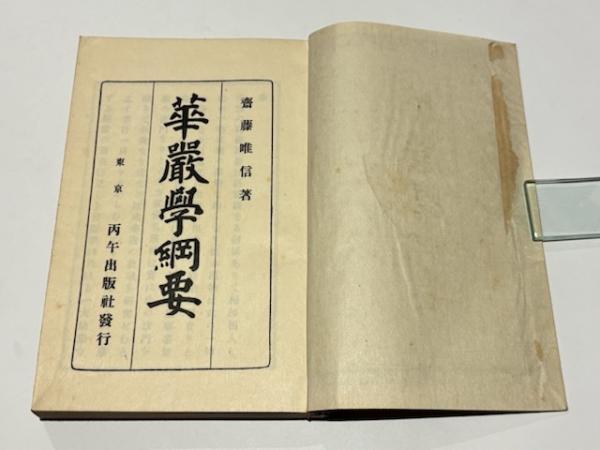 齋藤唯信著
華嚴學綱要
東京
丙午出版社發行